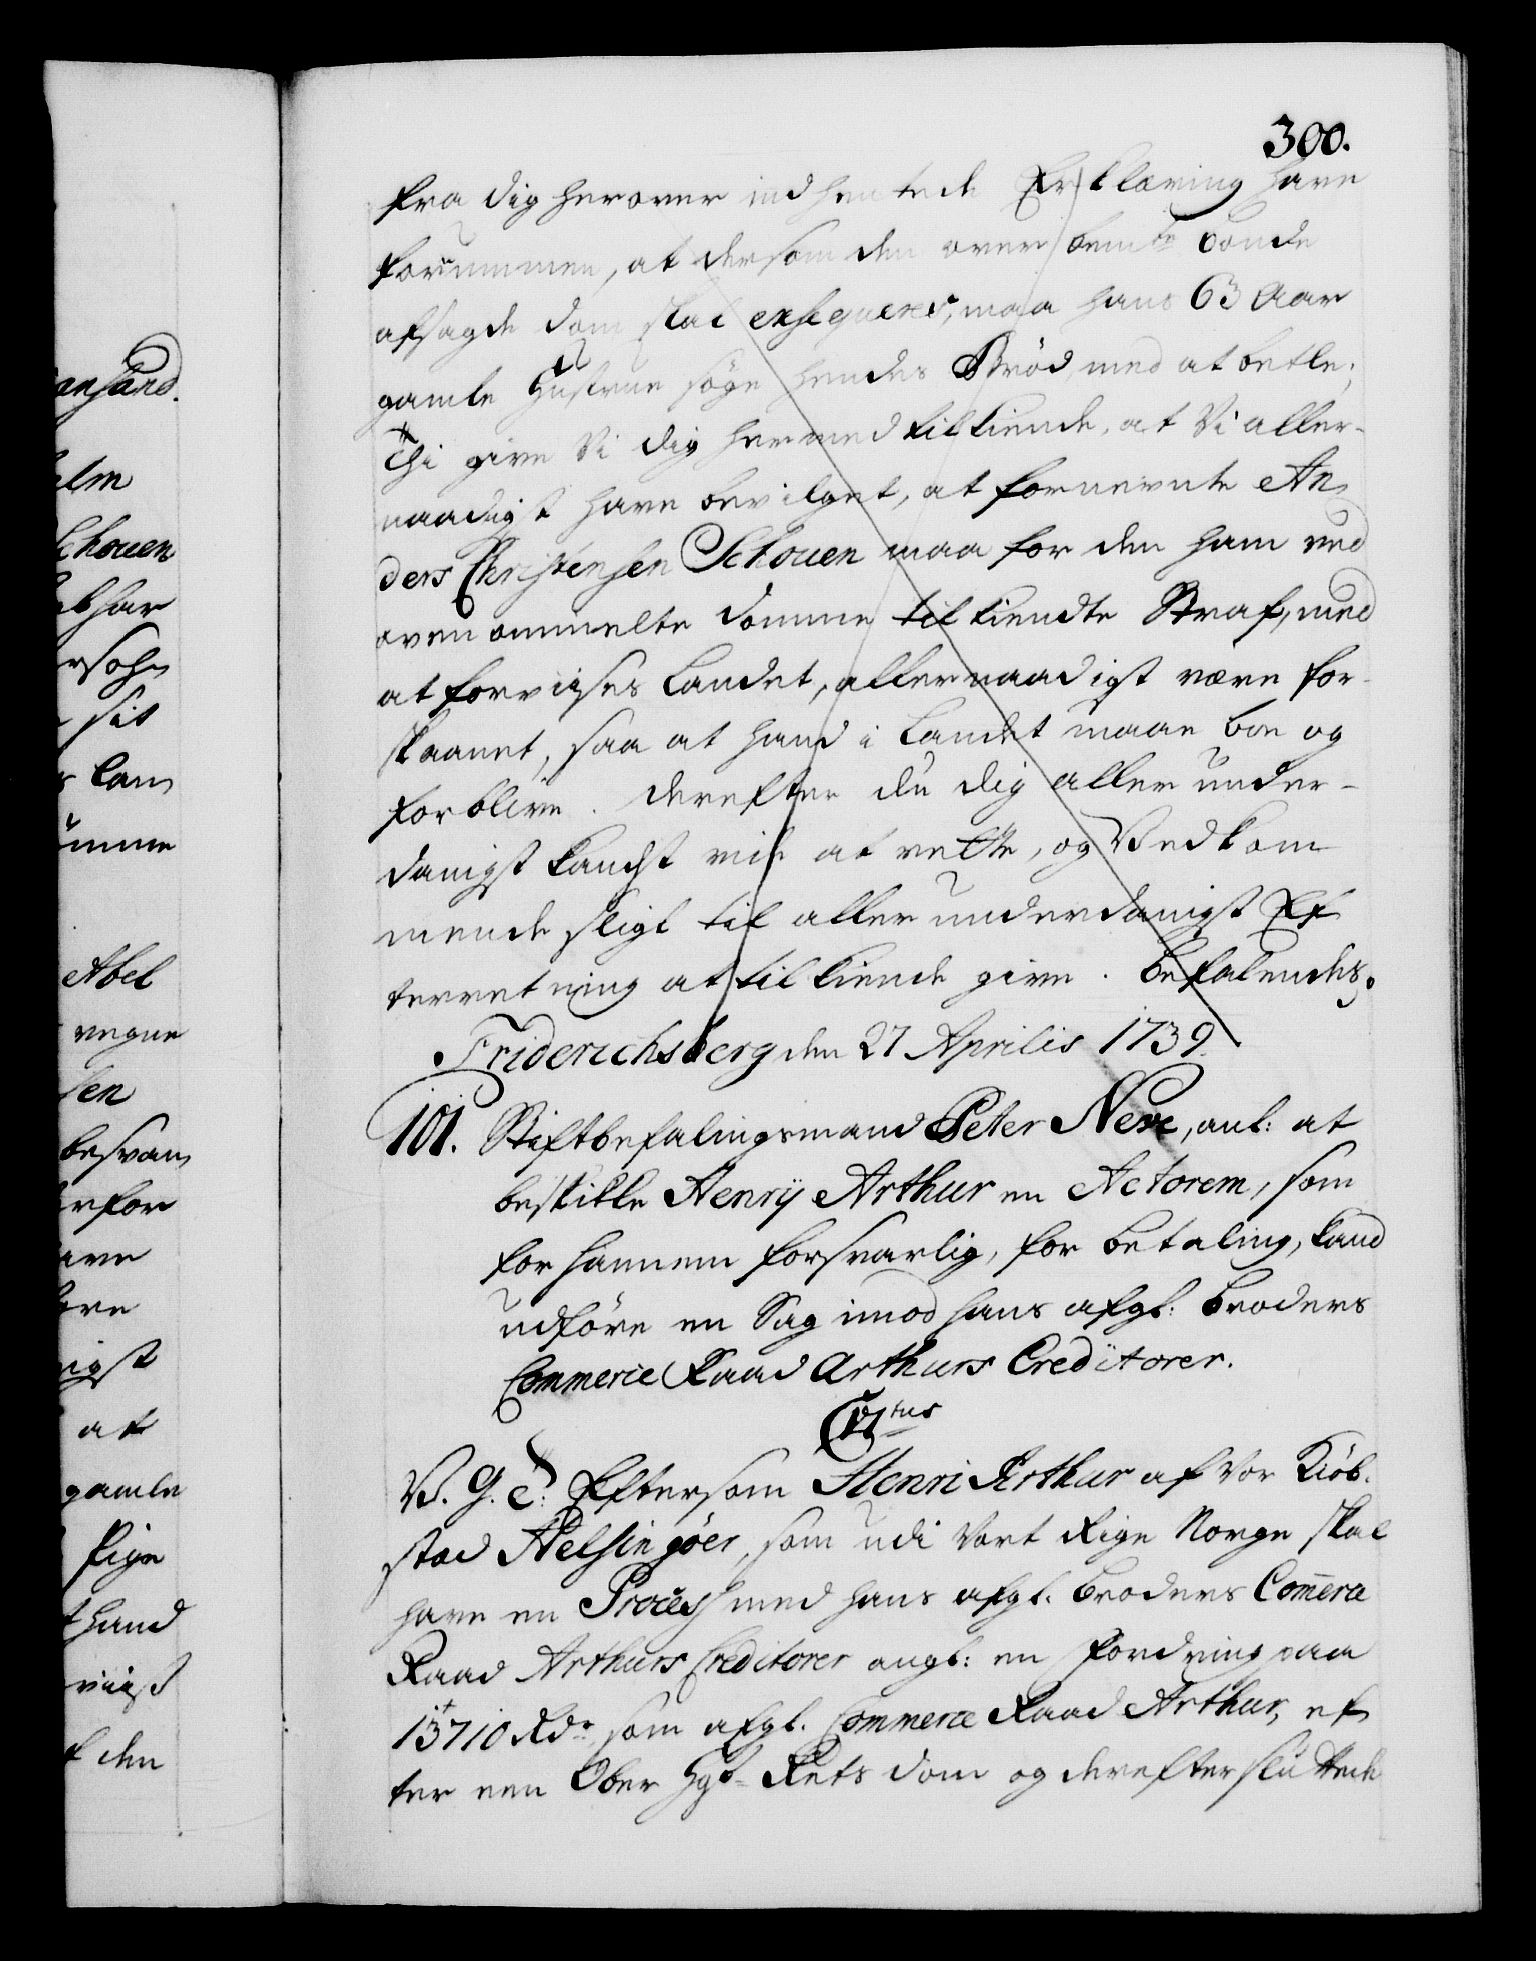 300.
fra dig herover indhentede Erklæring have
fornummen, at dersom den over bemte bonde
afsagde dom skal exseqveres, maa hans 63 Aar
gamle Hustrue söge hendes Bröd med at betle;
Thi give Vi dig hermed tilkiende, at Vi aller-
naadigst have bevilget, at fornevnte An
ders Christensen Schouen maa for den ham ved
ovenommelte domme tilkiendte Straf, med
at forviises Landet, allernaadigst være for-
skaanet, saa at hand i Landet maae boe og
forblive. derefter du dig allerunder-
danigst haver at rette, og Vedkom
mende sligt til allerunderdanigst Ef
terretning at tilkiende give. Befalendes.
Friderichsberg den 27 Aprilis 1739.
101. Stiftbefalingsmand Peter Neve, anl: at
beskikke Henrÿ Arthur en Actorem, som
for hannem forsvarlig, for betaling, kand
udföre en Sag imod hans afgl: Broders
Commerce Raad Arthurs Creditorer.
Ctus
V. G. t: Eftersom Henri Arthur af Vor Kiöb-
stad Helsingöer, som udi Vort Rige Norge skal
have en Process med hans afgl. Broders Comerce
Raad Arthurs Creditorer angl: en Fordring paa
13710 Rdr som afgl. Commerce Raad Arthur, ef
ter een Ober Hof- Rets dom og derefter sluttede
ansand.
elm
Schouen
ersohn
sit
Lan
ümme
Abel
vegne
sen
besvan
erfor
ave
ore
nigst
at
gamle
Pige
t hand
viist
f den